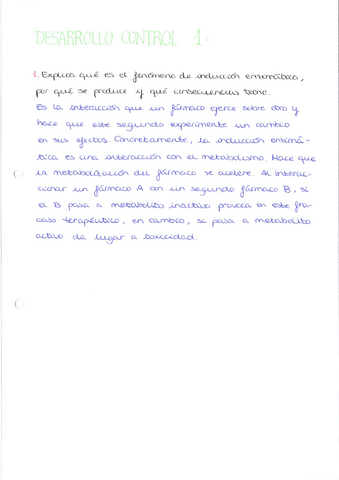 DESARROLLO CONTROL 1:
1. Explica qué es el fenómeno de inducción enzimática,
por qué se produce y qué consecuencias tiene.
Es la interacción que un fármaco ejerce sobre otro y
hace que este segundo experimente un cambio
en sus efectos. Concretamente, la inducción enzimá-
tica es una interacción con el metabolismo. Hace que
la metabolización del fármaco se acelere. Al interac-
cionar un fármaco A con un segundo fármaco B, si
el B pasa a metabolito inactivo provoca en este fra-
caso terapéutico, en cambio, si pasa a metabolito
activo da lugar a toxicidad.